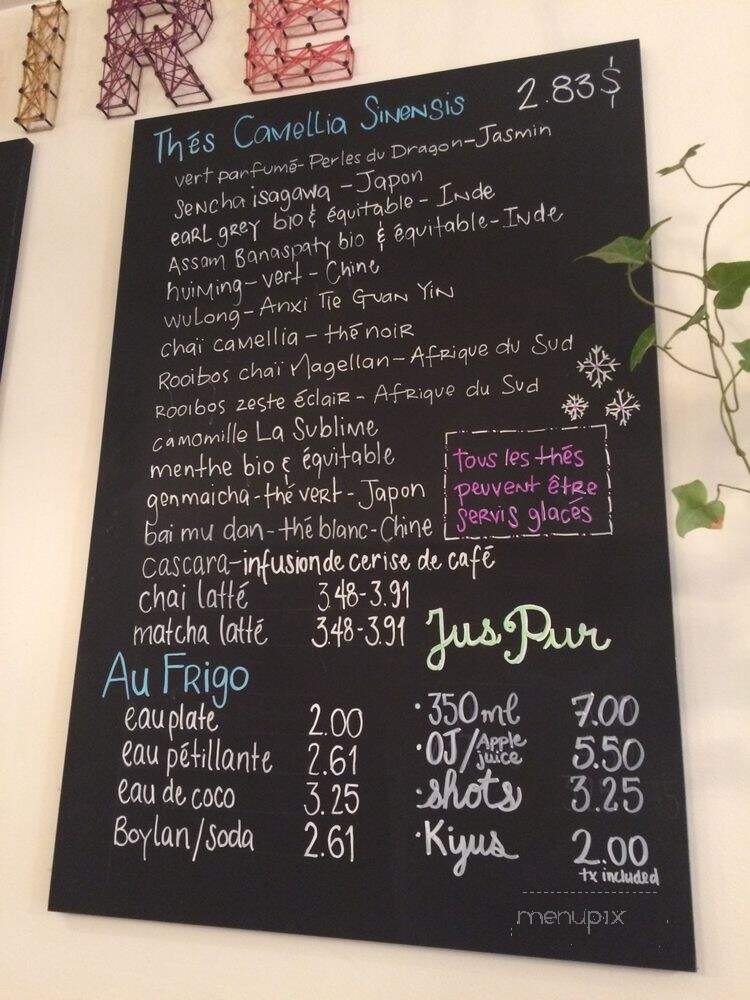 IRE
Thés Camellia Sinensis 2.83$
vert parfumé - Perles du Dragon - Jasmin
Sencha isagawa - Japon
earl grey bio & équitable - Inde
Assam Banaspaty bio & équitable - Inde
huiming - vert - Chine
wulong - Anxi Tie Guan Yin
chaï camellia - thé noir
Rooibos chaï Magellan - Afrique du Sud
Rooibos zeste éclair - Afrique du Sud
camomille La Sublime
menthe bio & équitable
genmaicha - thé vert - Japon
bai mu dan - thé blanc - Chine
tous les thés
peuvent être
servis glacés
cascara - infusion de cerise de café
chai latté 3.48-3.91
matcha latté 3.48-3.91
Au Frigo
eau plate 2.00
eau pétillante 2.61
eau de coco 3.25
Boylan/soda 2.61
Jus Pur
·350 ml 7.00
·OJ/Apple juice 5.50
·shots 3.25
·Kiyus 2.00
tx included
menupix